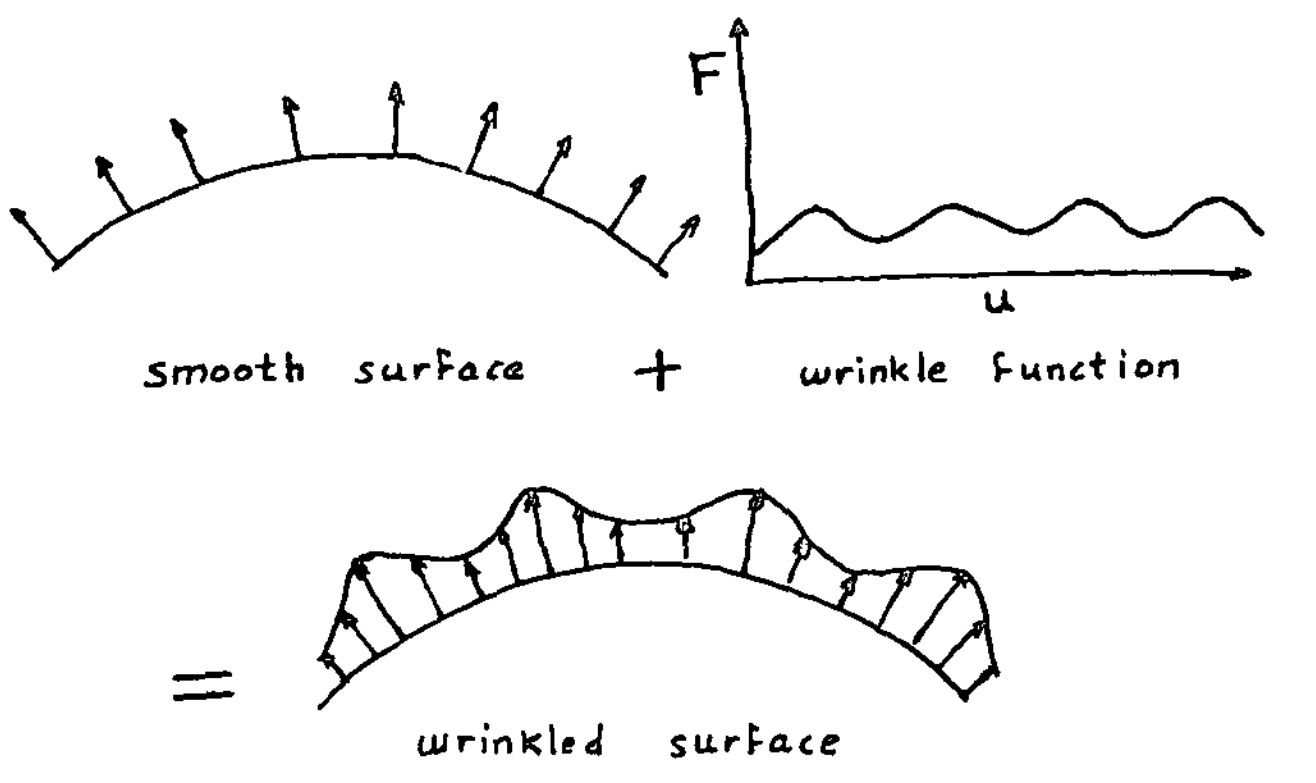 F
u
smooth surface + wrinkle function
=
wrinkled surface